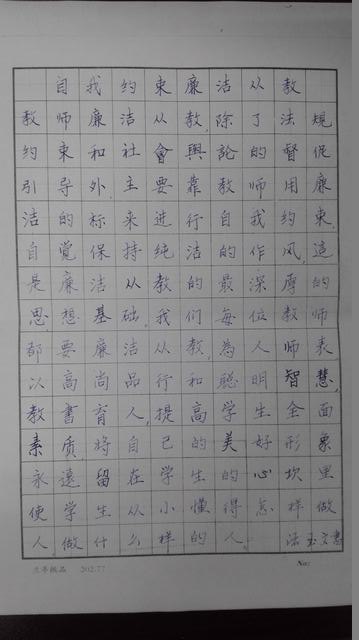 自我约束廉洁从教
教师廉洁从教,除了法规
约束和社會與論的督促
引导外,主要靠教师用廉
洁的标来進行自我约束,
自觉保持纯洁的作风,這
是廉洁从教的最深厚的
思想基础,我们每位教师
都要廉洁从教,為人师表
以高尚品行和聪明智慧,
教書育人,提高学生全面
素质将自己的美好形象
永遠留在学生的心坎里
使学生从小懂得怎样做
人,做什么样的人。
202.77
No: